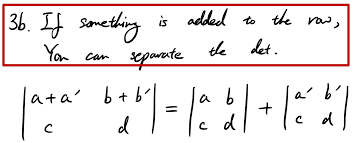 3b. If something is added to the row,
You can separate the det.
|a+a′ b+b′| = |a b| + |a′ b′|
|c d| |c d| |c d|